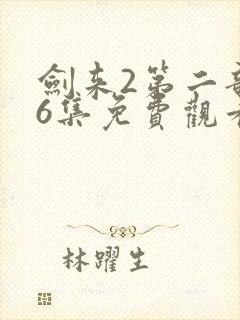 劍来2第二部
6集免費觀看
林躍生